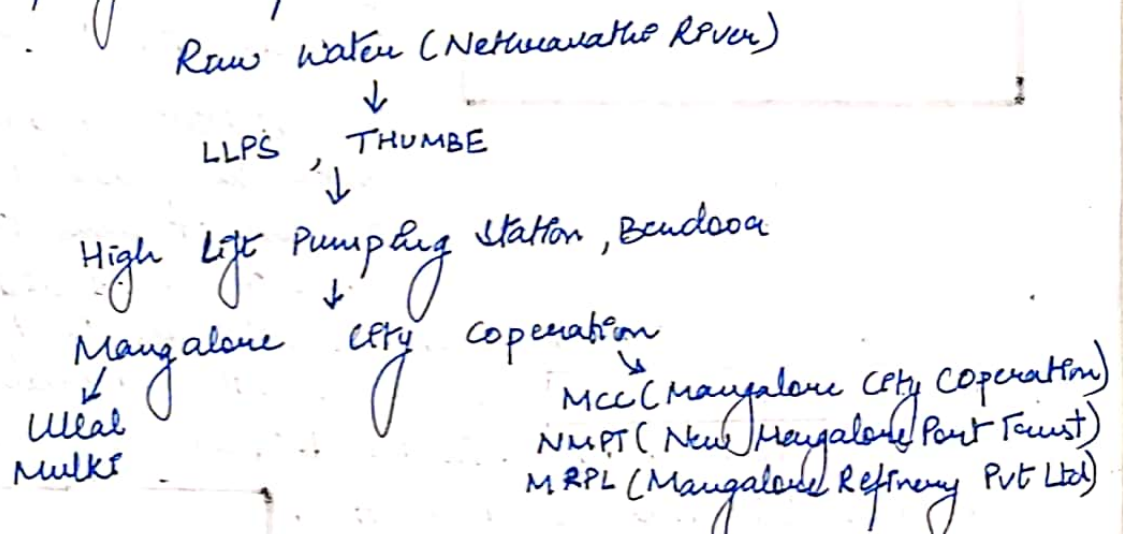 Raw Water (Nethravathi River)
↓
LLPS , THUMBE
↓
High Lift Pumping Station , Bendoor
↓
Mangalore City Coperation
↙ ↘
MCC (Mangalore City Coperation)
Ullal
NMPT ( New Mangalore Port Trust)
Mulki
MRPL (Mangalore Refinery Pvt Ltd)